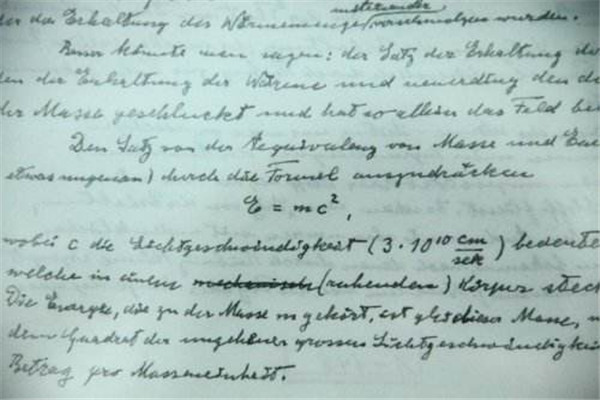 der das Erhaltung des Wärmemenge miteinander verschmolzen wurden.
Besser könnte man sagen: der Satz der Erhaltung der
den der Erhaltung der Wärme und neuerdings den der
der Masse geschluckt und hat so allein das Feld be
Den Satz von der Aequivalenz von Masse und Ene
etwas ungenau) durch die Formel auszudrücken
E = mc²,
wobei c die Lichtgeschwindigkeit (3 · 10¹⁰ cm/sek) bedeutet
welche in einem mechanisch (ruhenden) Körper steck
Die Energie, die zu der Masse m gehört, ist gleich dieser Masse, m
dem Quadrat der ungeheuer grossen Lichtgeschwindigkei
Betrag pro Masseneinheit.